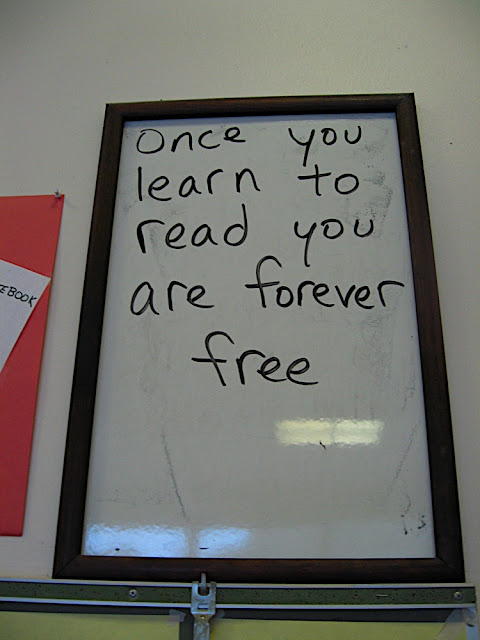 once you
learn to
read you
are forever
free
EBOOK